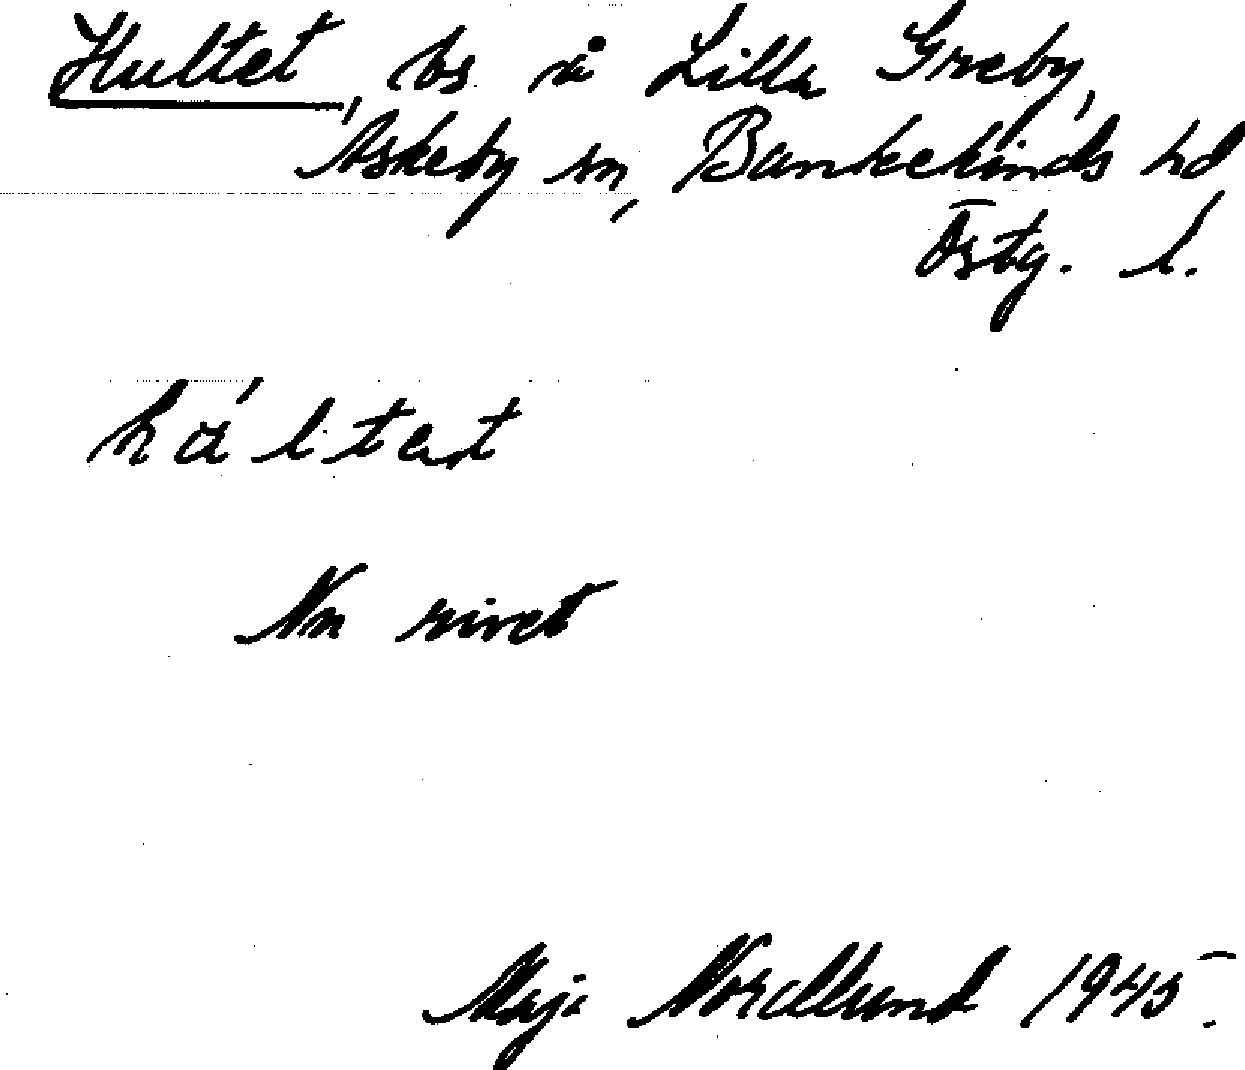 Hultet, bs å Lilla Greby,
Askeby sn, Bankekinds hd
Östg. l.
hál tet
Nu rivet
Maja Nordlund 1945.